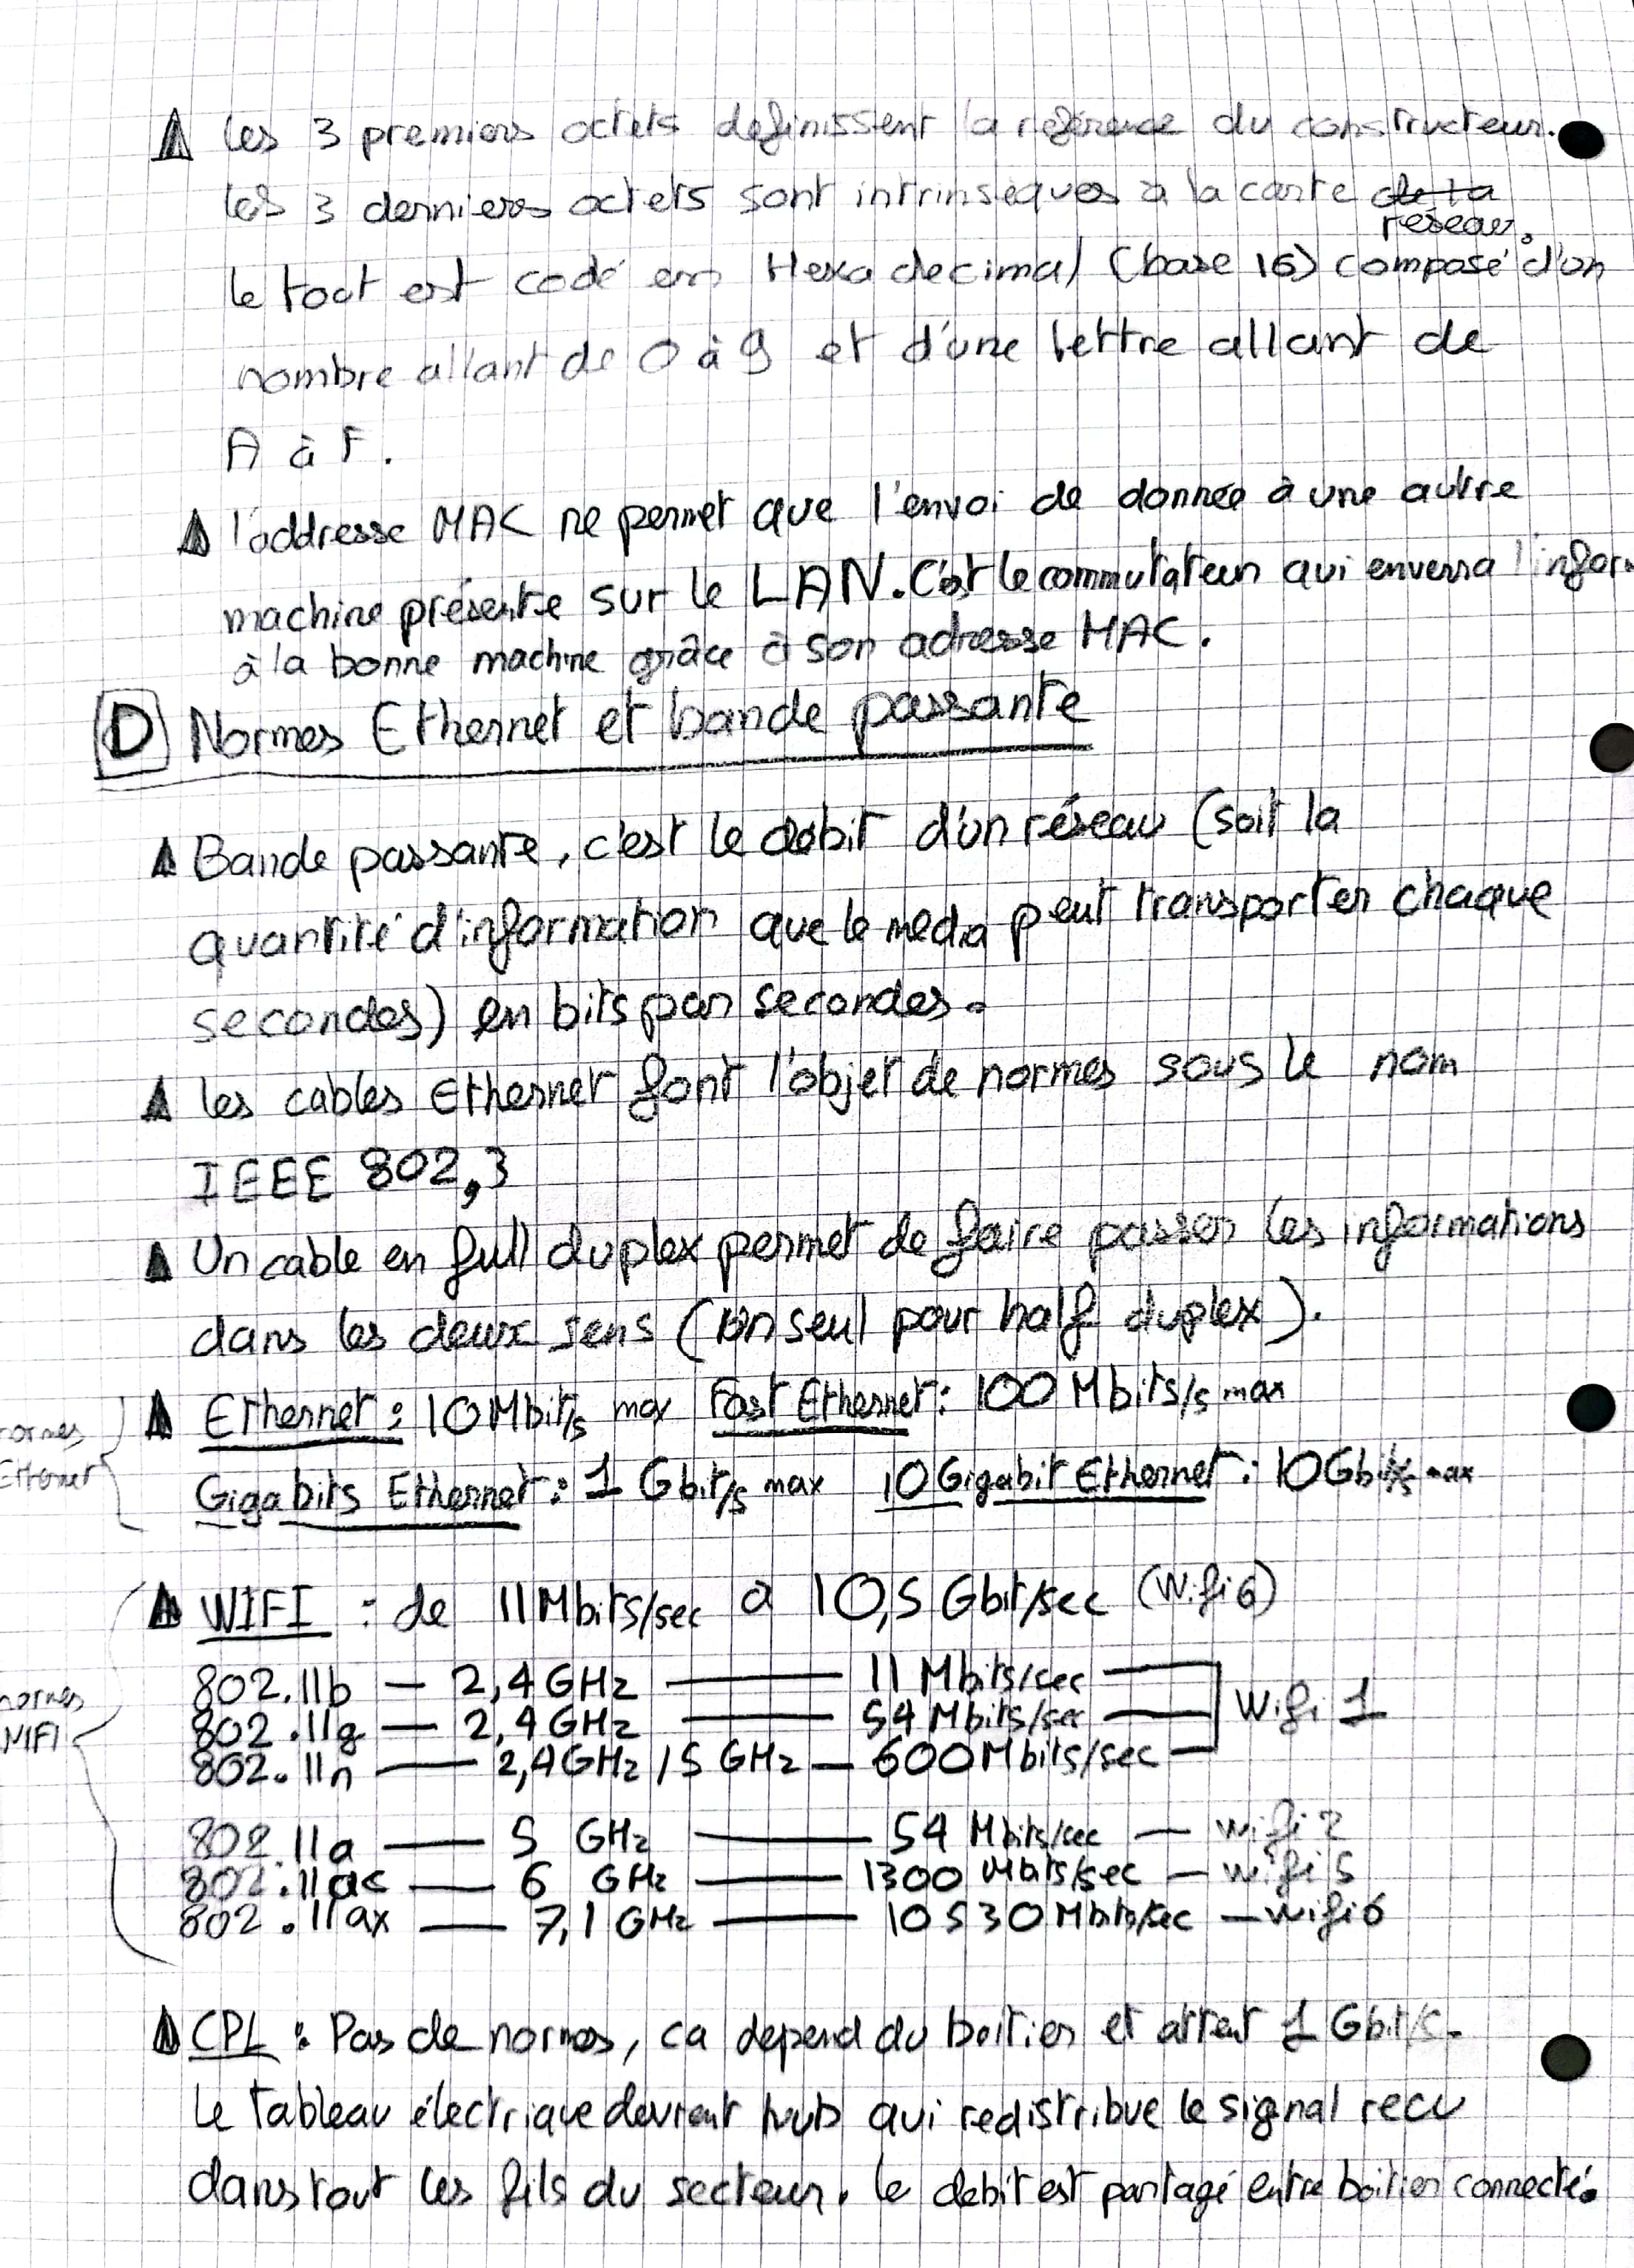 les 3 premiers octets definissent la reférence du constructeur.
les 3 derniers octets sont intrinseques a la carte de la
réseau.
le tout est codé en Hexa decimal (base 16) composé d'un
nombre allant de 0 à 9 et d'une lettre allant de
A à F.
l'addresse MAC ne permet que l'envoi de donnée à une autre
machine présente sur le LAN. C'est le commutateur qui enverra l'infor
à la bonne machine grâce à son adresse MAC.
D Normes Ethernet et bande passante
Bande passante, c'est le debit d'un réseau (soit la
quantité d'information que le media peut transporter chaque
secondes) en bits par secondes.
les cables Ethernet font l'objet de normes sous le nom
IEEE 802,3
Un cable en full duplex permet de faire passer les informations
dans les deux sens (un seul pour half duplex).
Ethernet : 10 Mbit/s max Fast Ethernet : 100 Mbits/s max
ormes
Ethernet
Gigabits Ethernet : 1 Gbit/s max 10 Gigabit Ethernet : 10 Gbit/s max
WIFI : de 11 Mbits/sec a 10,5 Gbit/sec (Wifi 6)
802.11b — 2,4 GHz — 11 Mbits/sec
normes
WIFI
802.11g — 2,4 GHz — 54 Mbits/sec — Wifi 1
802.11n — 2,4 GHz / 5 GHz — 600 Mbits/sec
802.11a — 5 GHz — 54 Mbits/sec — wifi 2
802.11ac — 6 GHz — 1300 Mbits/sec — wifi 5
802.11ax — 7,1 GHz — 10530 Mbits/sec — wifi 6
CPL : Pas de normes, ca depend du boitier et attent 1 Gbit/s.
le tableau électrique devient hub qui redistribue le signal recu
dans tout les fils du secteur. le debit est partagé entre boitier connecté.